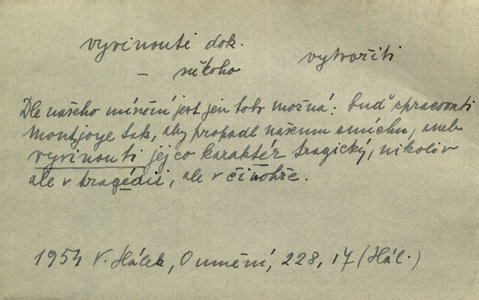 vyvinouti dok.
vytvořiti
– někoho
Dle našeho mínění jest jen toto možná: buď spracovati
Montjoye tak, aby propadl našemu smíchu, anebo
vyvinouti jej co karaktér tragický, nikoliv
ale v tragédii, ale v činohře.
1954 V. Hálek, O umění, 228, 17 (Hál.)